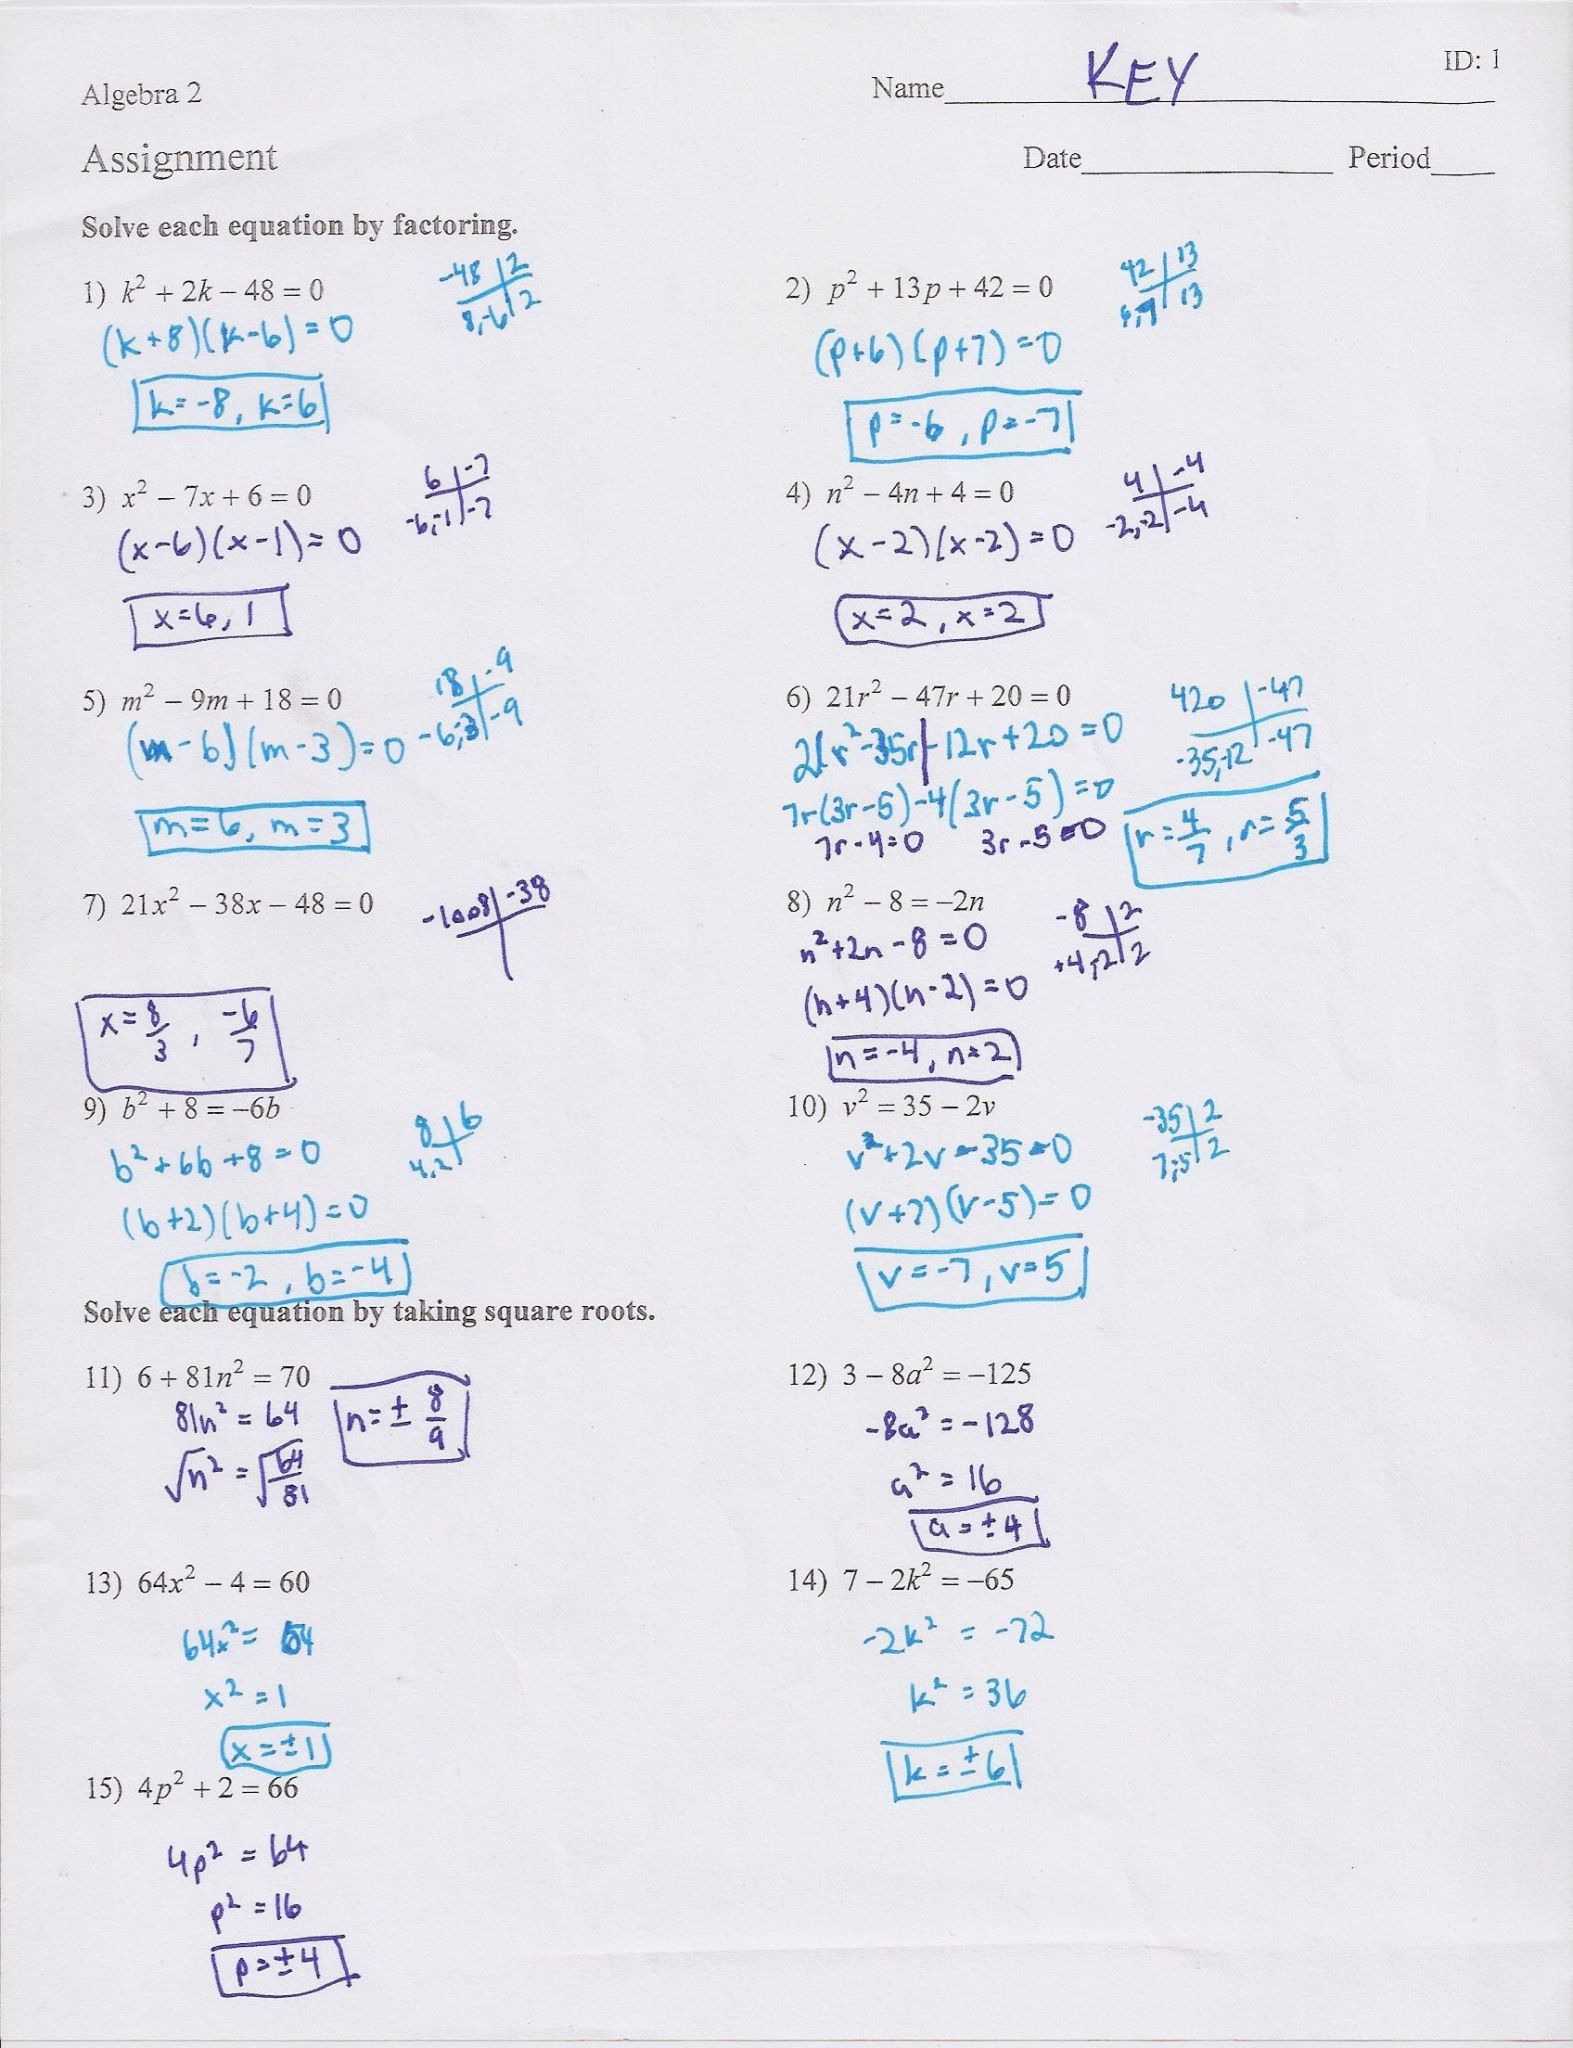 Algebra 2
Name KEY
ID: 1
Assignment
Date
Period
Solve each equation by factoring.
1) k² + 2k – 48 = 0
-48 | 2
8,-6 | 2
(k+8)(k-6) = 0
k = -8, k=6
2) p² + 13p + 42 = 0
42 | 13
6,7 | 13
(p+6)(p+7) = 0
p = -6, p = -7
3) x² – 7x + 6 = 0
6 | -7
-6,-1 | -7
(x-6)(x-1) = 0
x = 6, 1
4) n² – 4n + 4 = 0
4 | -4
-2,-2 | -4
(x-2)(x-2) = 0
x=2, x=2
5) m² – 9m + 18 = 0
18 | -9
-6,-3 | -9
(m-6)(m-3) = 0
m=6, m=3
6) 21r² – 47r + 20 = 0
420 | -47
-35,-12 | -47
21r²-35r|-12r+20 = 0
7r(3r-5)-4(3r-5) = 0
7r-4=0 3r-5=0
r = 4/7, r = 5/3
7) 21x² – 38x – 48 = 0
-1008 | -38
x = 8/3, -6/7
8) n² – 8 = –2n
-8 | 2
+4,-2 | 2
n²+2n-8 = 0
(n+4)(n-2) = 0
n=-4, n=2
9) b² + 8 = –6b
8 | 6
4,2
b²+6b+8 = 0
(b+2)(b+4) = 0
b=-2, b=-4
10) v² = 35 – 2v
-35 | 2
7,-5 | 2
v²+2v-35=0
(v+7)(v-5) = 0
v=-7, v=5
Solve each equation by taking square roots.
11) 6 + 81n² = 70
81n² = 64
√n² = √64/81
n = ± 8/9
12) 3 – 8a² = –125
-8a² = -128
a² = 16
a = ±4
13) 64x² – 4 = 60
64x² = 64
x² = 1
x = ±1
14) 7 – 2k² = –65
-2k² = -72
k² = 36
k = ±6
15) 4p² + 2 = 66
4p² = 64
p² = 16
p = ±4